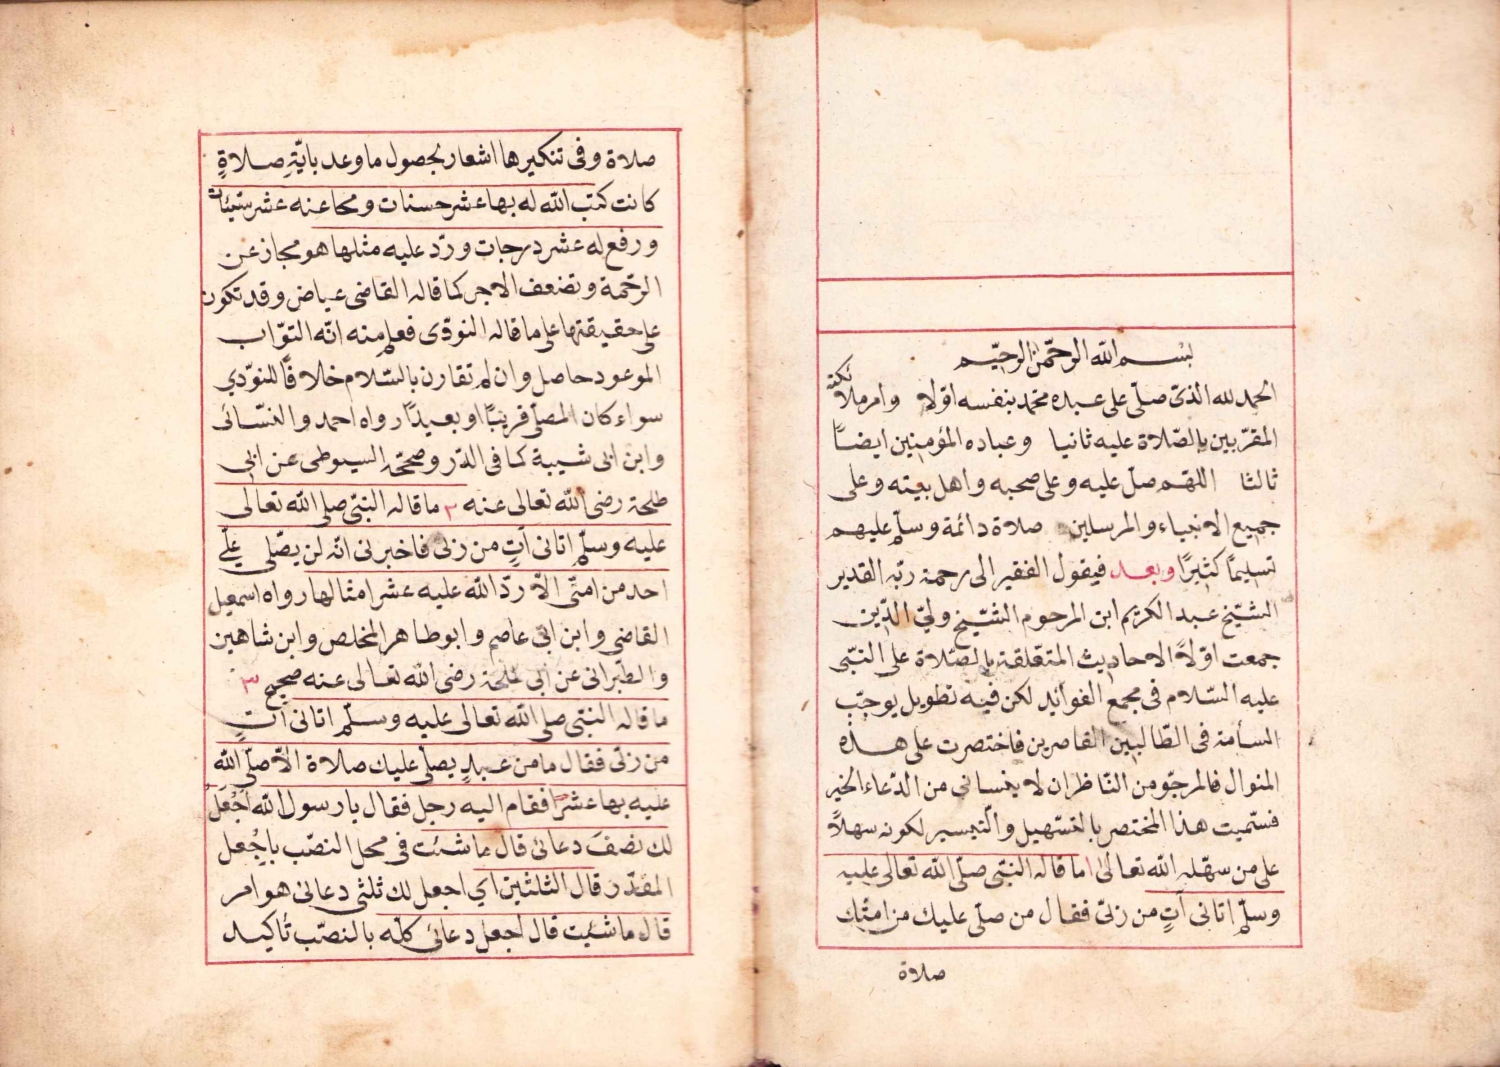 بسم الله الرحمن الرحيم
الحمد لله الذى صلّى على عبده محمد بنفسه اوّلا وامر ملائكته
المقرّبين بالصّلاة عليه ثانيا وعباده المؤمنين ايضًا
ثالثا اللهم صل عليه وعلى صحبه واهل بيته وعلى
جميع الانبياء والمرسلين صلاة دائمة وسلّم عليهم
تسليمًا كثيرًا وبعد فيقول الفقير الى رحمة ربّه القدير
الشيّخ عبد الكريم ابن المرحوم الشيّخ وليّ الدّين
جمعت اوّلاً الاحاديث المتعلقة بالصّلاة على النبّى
عليه السّلام فى مجمع الفوائد لكن فيه تطويل يوجب
السأمة فى الطّالبين القاصرين فاختصرت على هذه
المنوال فالمرجوّ من النّاظران لا ينسانى من الدّعاء الخير
فسمّيت هذا المختصر بالتسهيل والتّيسير لكونه سهلاً
على من سهّله الله تعالى ١ ما قاله النبّى صلّى الله تعالى عليه
وسلّم اتانى آتٍ من ربّى فقال من صلّى عليك من امتك
صلاة
صلاة وفى تنكيرها اشعار بحصول ما وعد بايّةِ صلاةٍ
كانت كتب الله له بها عشر حسنات ومحا عنه عشر سيّئات
ورفع له عشر درجات وردّ عليه مثلها هو مجاز عن
الرحّمة وتضعف الاجر كما قاله القاضى عياض وقد تكون
على حقيقتها على ما قاله النووّى فعلم منه انّه الثوّاب
الموعود حاصل وان لم تقارن بالسّلام خلافًا للنووّي
سواء كان المصلّى قريبًا او بعيدًا رواه احمد والنسّائى
وابن ابى شيبة كما فى الدّر وصححّه السيوطى عن ابى
طلحة رضى الله تعالى عنه ٢ ما قاله النبّى صلى الله تعالى
عليه وسلّم اتانى آتٍ من ربّى فاخبرنى انّه لن يصّلى عليّ
احد من امتّى الاّ ردّ الله عليه عشر امثالها رواه اسمعيل
القاضى وابن ابى عاصم وابو طاهر المخلص وابن شاهين
والطبّرانى عن ابى طلحة رضى الله تعالى عنه صحيح ٣
ما قاله النبّى صلى الله تعالى عليه وسلّم اتانى آتٍ
من ربّى فقال ما من عبدٍ يصلّى عليك صلاة الاّ صلّى الله
عليه بها عشرًا فقام اليه رجل فقال يا رسول الله اَجْعَلُ
لك نصف دعائى قال ما شئت فى محل النصّب باجْعل
المقدّر قال الثلثين اي اجعل لك ثلثى دعائى هو امر
قال ما شئت قال اجعل دعائى كلّه بالنصّب تأكيد